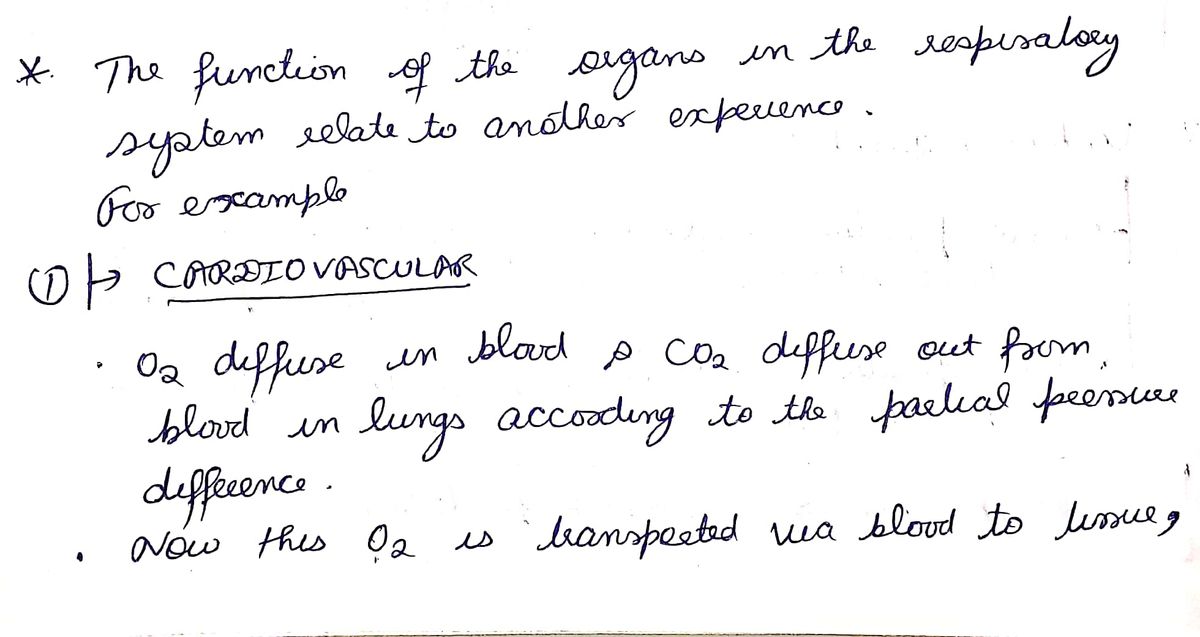 *. The function of the organs in the respiratory
system relate to another experience.
For example
① ↦ CARDIOVASCULAR
· O₂ diffuse in blood & CO₂ diffuse out from
blood in lungs according to the partial pressure
difference.
· Now this O₂ is transported via blood to tissue,